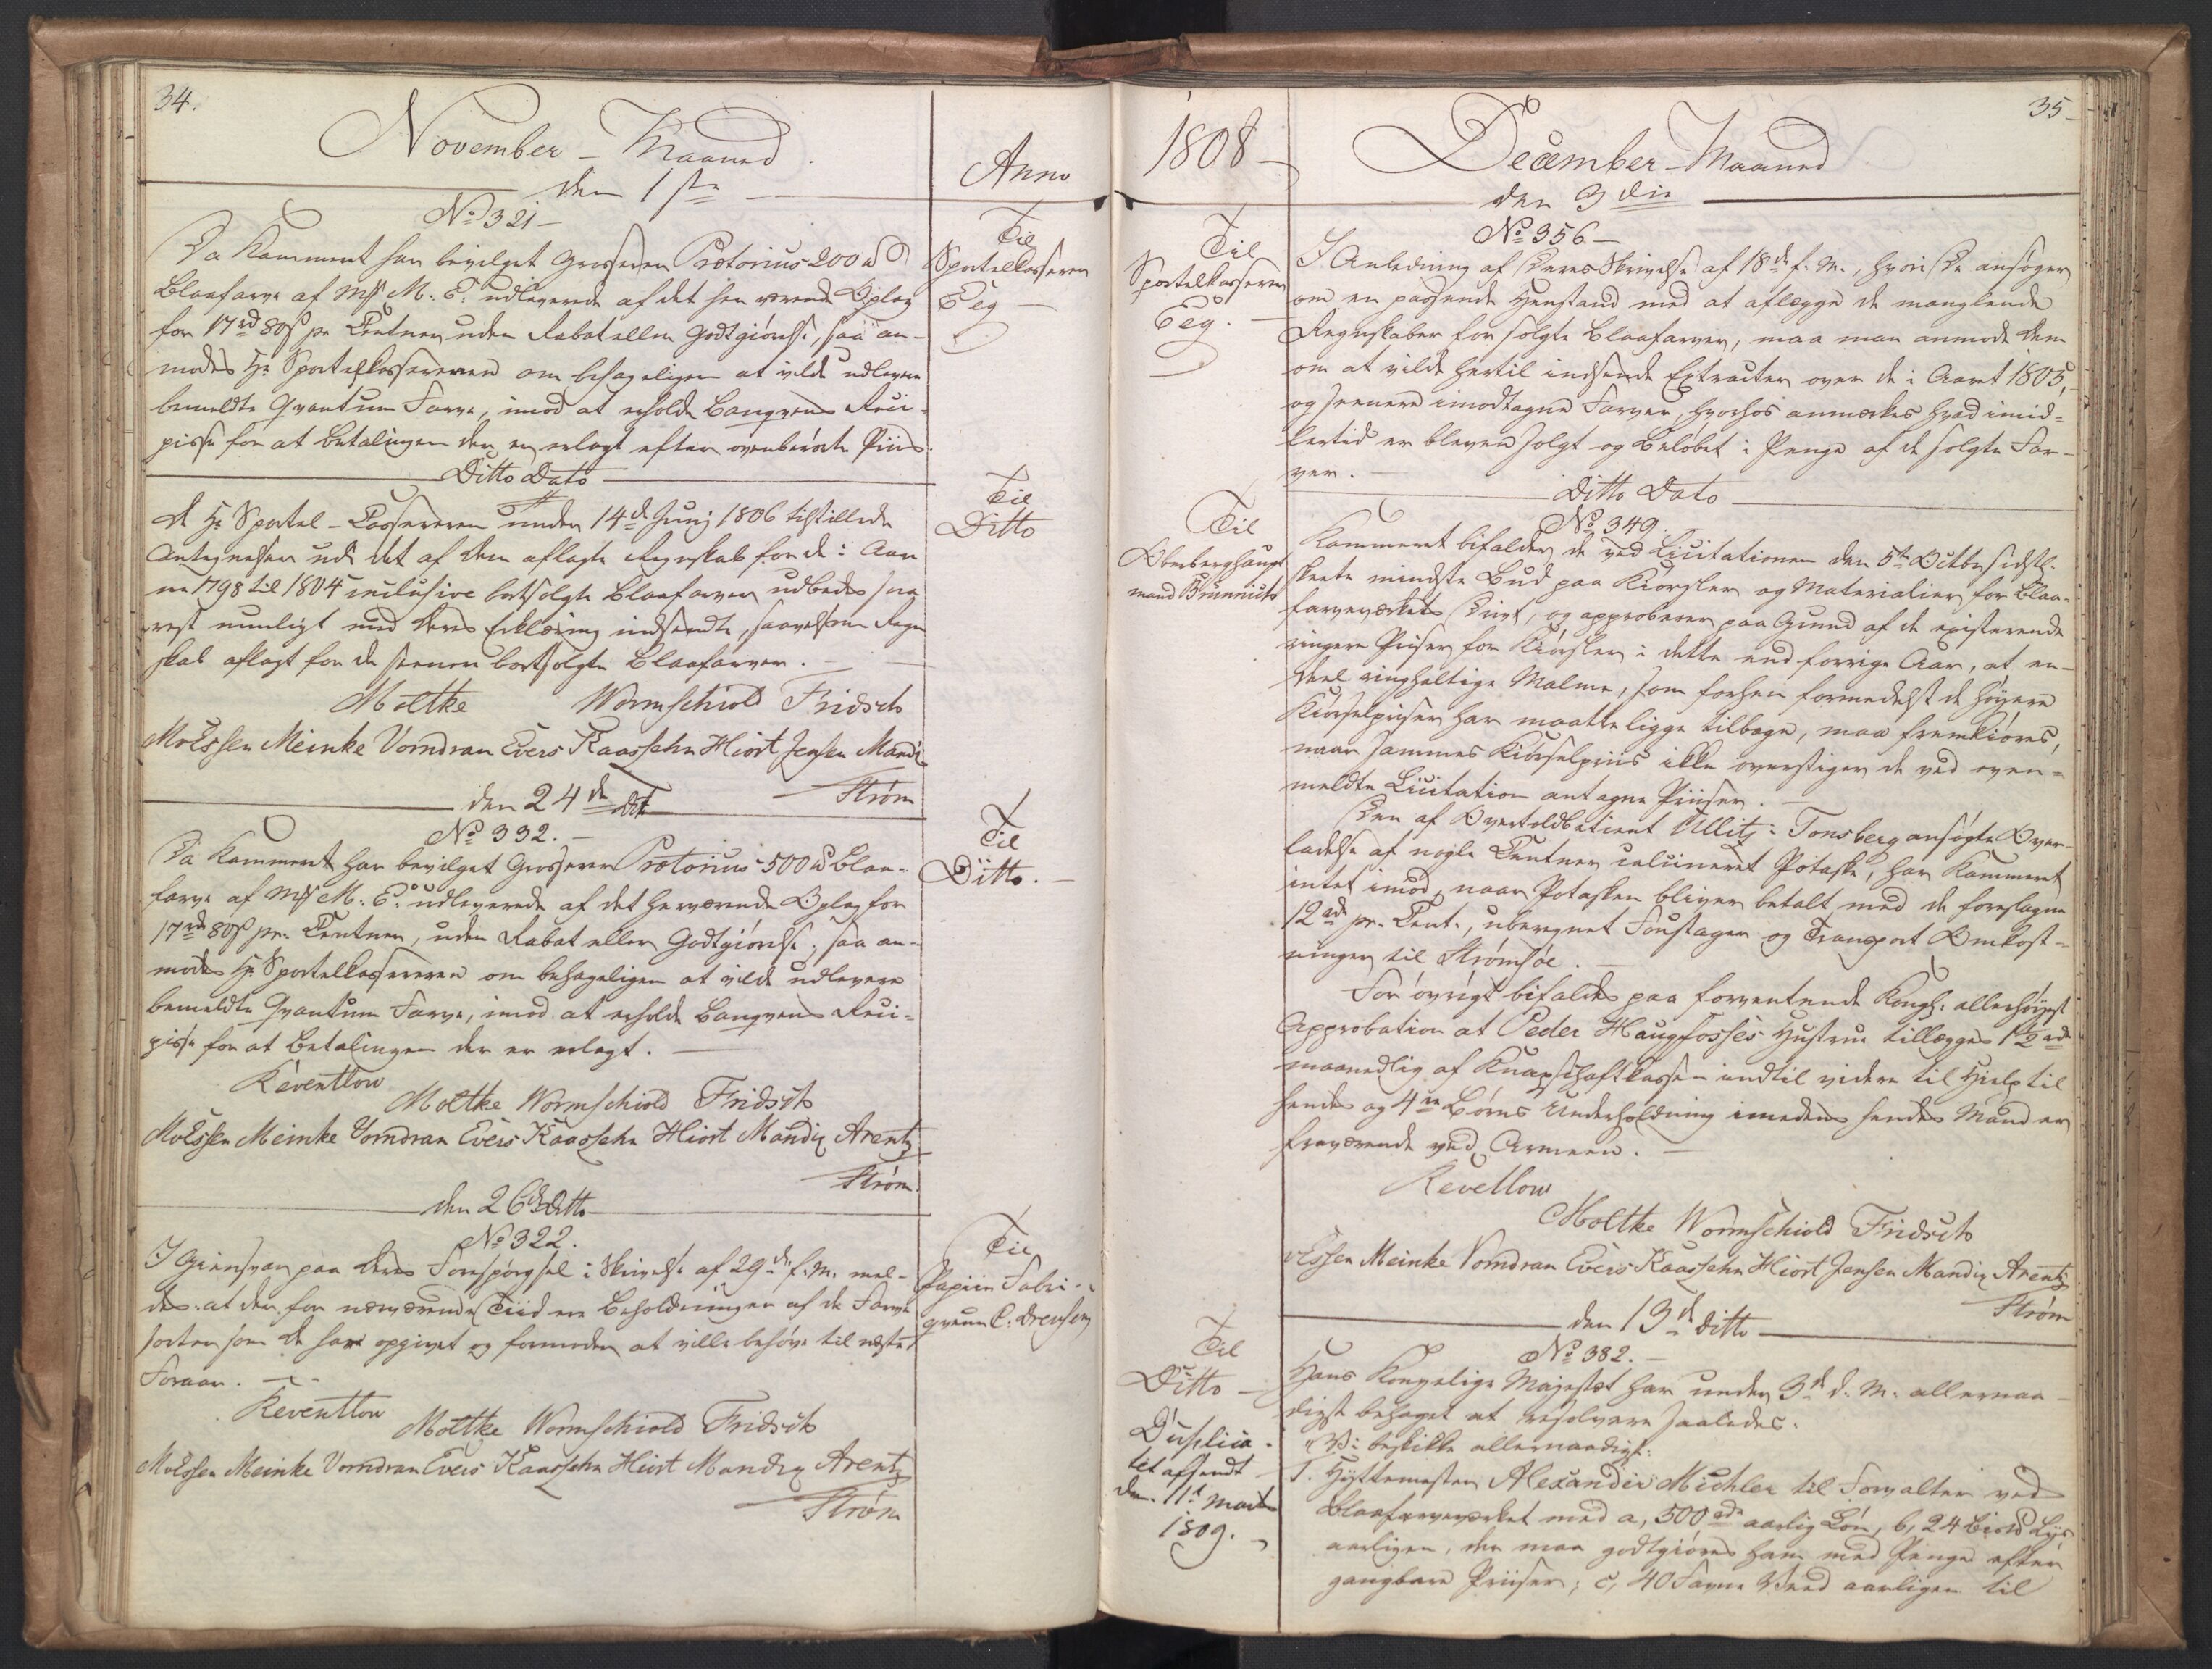 34.
November-Maaned.
Anno
den 1ste
No 321-
Til
Sportelkasserer
Eeg
Da Kammeret har bevilget Grosserer Prætorius 200 ℔
Blaafarve af Mk M. E. udleverede af det her værende Oplag
for 17 rd 80 s pr Centner uden Rabat eller Godtgiörelse, saa an-
modes Hr Sportelkassereren om behageligen at vilde udlevere
bemeldte Qvantum Farve, imod at erholde Banqvens Reci-
pisse for at Betalingen der er erlagt efter ovenberörte Priis.
Ditto Dato
Til
Ditto
De Hr Sportel-Cassereren under 14de Junij 1806 tilstillede
Antegnelser ved det af Dem aflagte Regnskab for de i Aar
ne 1798 til 1804 inclusive bortsolgte Blaafarver udbedes sna
rest mueligt med Deres Erklæring indsendte, saavelsom Regn
skab aflagt for de senere bortsolgte Blaafarver.
Moltke Wormschiold Fridsch
MvEssen Meinke Vorndran Evers Kaassehn Hiort Jensen Mandix
Ström
den 24de Dit
No 332.-
Til
Ditto.
Da Kammeret har bevilget Grosserer Prætorius 500 ℔ Blaa-
farve af Mk M. E. udleverede af det herværende Oplag for
17 rd 80 s pr. Centner, uden Rabat eller Godtgiörelse, saa an-
modes Hr Sportelkassereren om behageligen at vilde udlevere
bemeldte Qvantum Farve, imod at erholde Banqvens Reci-
pisse for at Betalingen der er erlagt.
Reventlow
Moltke Wormschiold Fridsch
MvEssen Meinke Vorndran Evers Kaassehn Hiort Mandix Arentz
Ström.
den 26de Ditto
No 322.
Til
Papiir Fabri-
qveur C. Drewsen
I Giensvar paa Deres Forespörgsel i Skrivelse af 29de f. M. mel-
des: at der for nærværende Tiid er Beholdninger af de Farve
sorter som De har opgivet og formoder at ville behöve til næste
Foraar.
Reventlow
Moltke Wormschiold Fridsch
MvEssen Meinke Vorndran Evers Kaassehn Hiort Mandix Arentz
Ström
35
1808
December-Maaned
den 3die
No 356-
Til
Sportelkasserer
Eeg.
I Anledning af Deres Skrivelse af 18de f. M., hvori De ansöger
om en passende Henstand med at aflægge de manglende
Regnskaber for solgte Blaafarver, maa man anmode Dem
om at vilde hertil indsende Extracter over de i Aaret 1805,
og seenere imodtagne Farver, hvorhos anmærkes hvad imid-
lertid er bleven solgt og Belöbet i Penge af de solgte Far-
ver.
Ditto Dato
No 349.
Til
Oberberghaupt
mand Brünnich
Kammeret bifalder de ved Licitationen den 5te Octbr sidstl.
skeete mindste Bud paa Kiörsler og Materialier for Blaa-
farveværkets Drivt, og approberer paa Grund af de existerende
ringere Priser for Kiörsler i dette end forrige Aar, at en-
deel ringhaltige Malme, som forhen formedelst de höyere
Kiörselpriser har maatte ligge tilbage, maa fremkiöres,
naar sammes Kiörselpriis ikke overstiger de ved oven-
meldte Licitation antagne Priiser.
Den af Overtoldbetient Ullitz i Tonsberg ansögte Over-
ladelse af nogle Centner calcineret Potaske, har Kammeret
intet imod, naar Potasken bliver betalt med de foreslagne
12 rd pr. Cent., uberegnet Foustager og Transport Omkost-
ninger til Strömsöe.
For övrigt bifaldes paa forventende Kongl: allerhöyest
Approbation at Peder Haugfosses Hustrue tillægges 1½ rd
maanedlig af Knapschaftkassen indtil videre til Hjelp til
hendes og 4re Börns Underholdning imedens hendes Mand er
fraværende ved Armeen.
Revetlow
Moltke Wormschiold Fridsch
vEssen Meinke Vorndran Evers Kaassehn Hiort Jensen Mandix Arentz
Ström
den 13de Ditto
No 382.-
Til
Ditto
Duplica-
tet afsendt
den 11te Marts
1809.
Hans Kongelige Majestæt har under 3de d. M. allernaa-
digst behaget at resolvere saaledes:
"Vi beskikke allernaadigst:
1. Hyttemester Alexander Michler til Forvalter ved
Blaafarveværket med a, 500 rd aarlig Lön, b, 24 Bispd Lys
aarligen, der maa godtgiöres ham med Penge efter
gangbare Priiser; c, 40 Favne Veed aarligen til